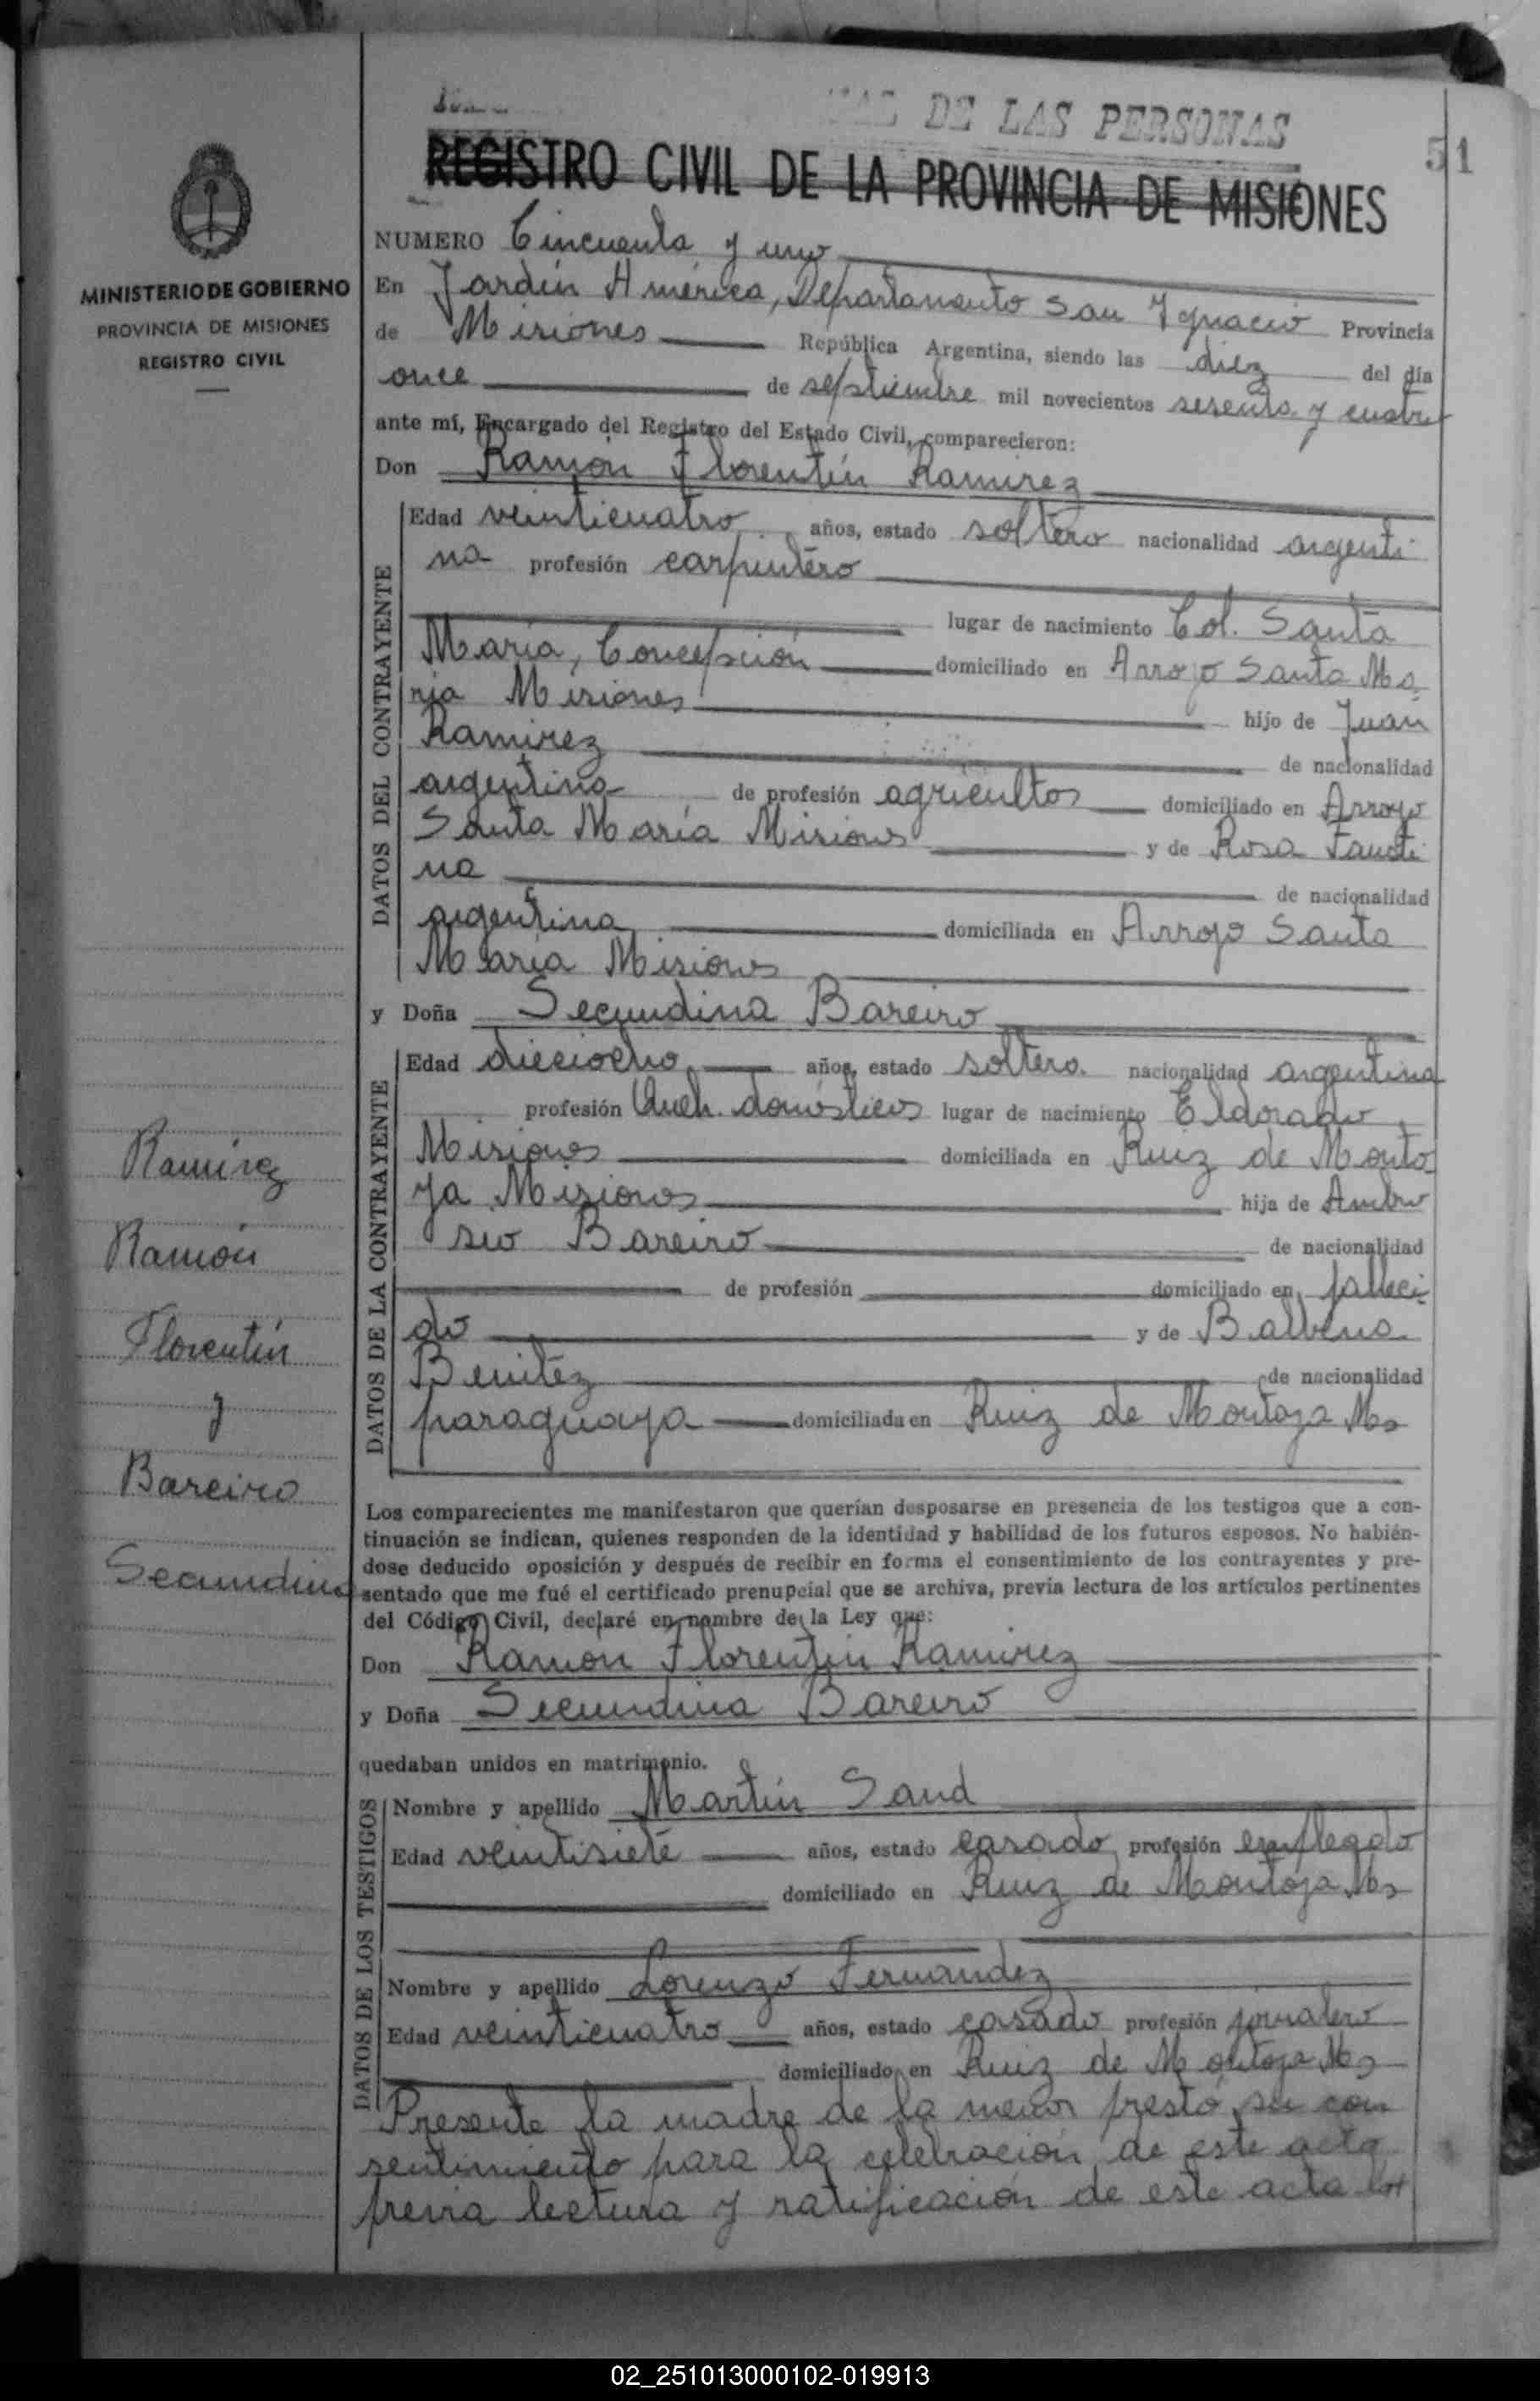 DE LAS PERSONAS
51
REGISTRO CIVIL DE LA PROVINCIA DE MISIONES
MINISTERIO DE GOBIERNO
PROVINCIA DE MISIONES
REGISTRO CIVIL
NUMERO Cincuenta y uno
En Jardín América, Departamento San Ignacio Provincia
de Misiones República Argentina, siendo las diez del día
once de septiembre mil novecientos sesenta y cuatro
ante mí, Encargado del Registro del Estado Civil, comparecieron:
Don Ramón Florentín Ramirez
DATOS DEL CONTRAYENTE
Edad veinticuatro años, estado soltero nacionalidad argenti
na profesión carpintero
lugar de nacimiento Col. Santa
María, Concepción domiciliado en Arroyo Santa Ma
ria Misiones hijo de Juan
Ramirez de nacionalidad
argentina de profesión agricultor domiciliado en Arroyo
Santa María Misiones y de Rosa Fausti
na de nacionalidad
argentina domiciliada en Arroyo Santa
María Misiones
y Doña Secundina Bareiro
DATOS DE LA CONTRAYENTE
Edad dieciocho años, estado soltera nacionalidad argentina
profesión Queh. domésticos lugar de nacimiento Eldorado,
Misiones domiciliada en Ruiz de Monto
ya Misiones hija de Ambro
sio Bareiro de nacionalidad
de profesión domiciliado en falleci
do y de Balbina
Benitez de nacionalidad
paraguaya domiciliada en Ruiz de Montoya Ms
Ramírez
Ramón
Florentín
y
Bareiro
Secundina
Los comparecientes me manifestaron que querían desposarse en presencia de los testigos que a con-
tinuación se indican, quienes responden de la identidad y habilidad de los futuros esposos. No habién-
dose deducido oposición y después de recibir en forma el consentimiento de los contrayentes y pre-
sentado que me fué el certificado prenupcial que se archiva, previa lectura de los artículos pertinentes
del Código Civil, declaré en nombre de la Ley que:
Don Ramón Florentin Ramirez
y Doña Secundina Bareiro
quedaban unidos en matrimonio.
DATOS DE LOS TESTIGOS
Nombre y apellido Martín Sand
Edad veintisiete años, estado casado profesión empleado
domiciliado en Ruiz de Montoya Ms
Nombre y apellido Lorenzo Fernandez
Edad veinticuatro años, estado casado profesión jornalero
domiciliado en Ruiz de Montoya Ms
Presente la madre de la menor prestó su con
sentimiento para la celebración de este acto
previa lectura y ratificación de este acta
02_251013000102-019913